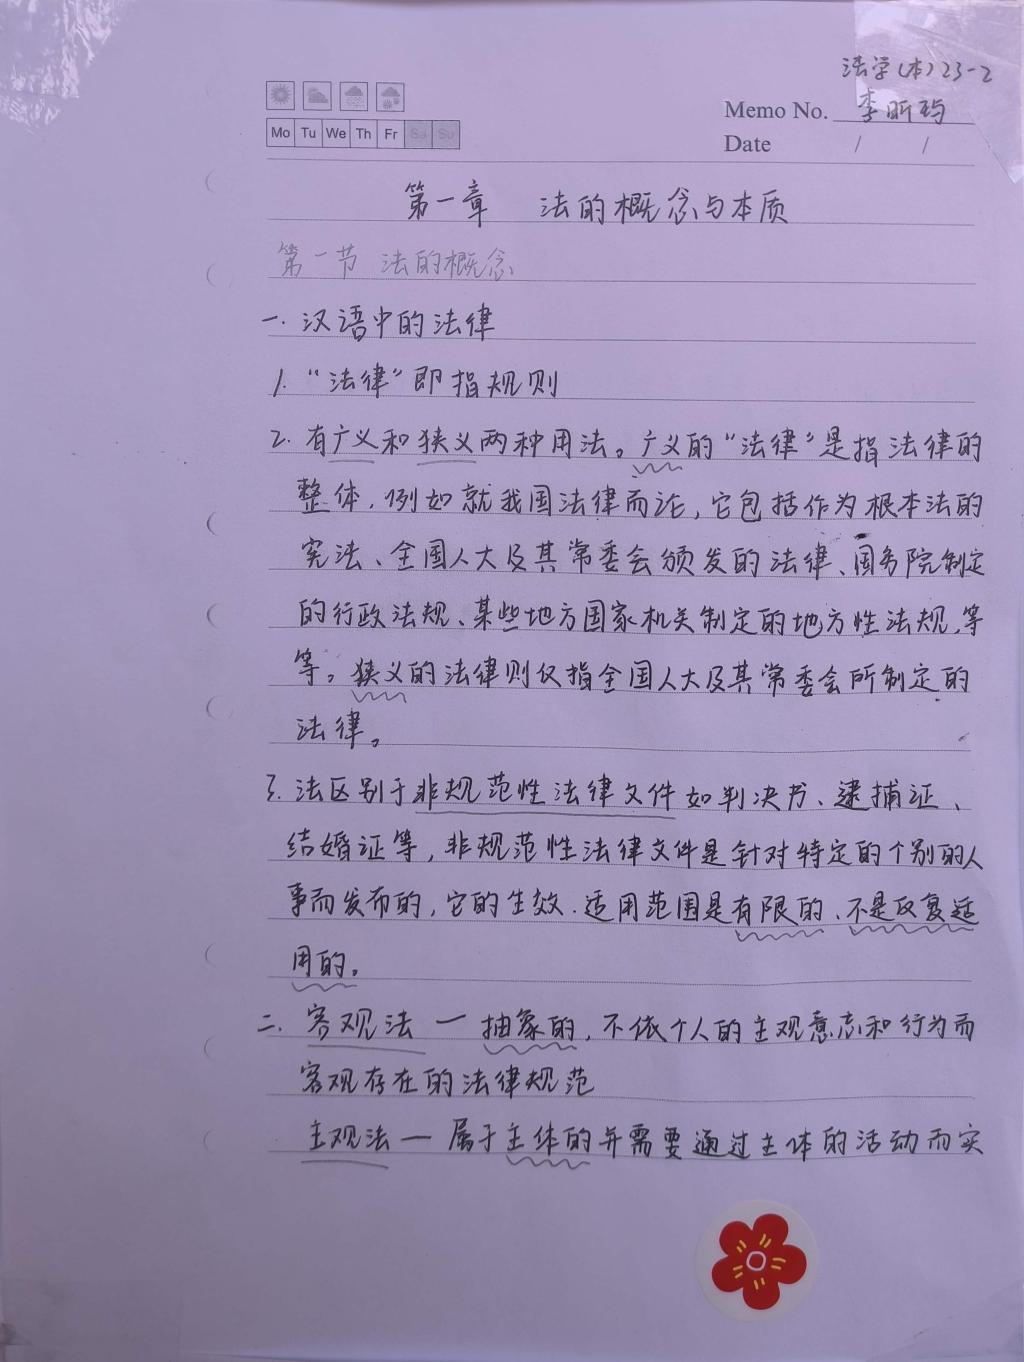 法学(本)23-2
Memo No. 李昕玙
Mo Tu We Th Fr Sa Su
Date / /
第一章 法的概念与本质
第一节 法的概念
一. 汉语中的法律
1. “法律”即指规则
2. 有广义和狭义两种用法。广义的“法律”是指法律的
整体, 例如就我国法律而论, 它包括作为根本法的
宪法、全国人大及其常委会颁发的法律、国务院制定
的行政法规、某些地方国家机关制定的地方性法规, 等
等。狭义的法律则仅指全国人大及其常委会所制定的
法律。
3. 法区别于非规范性法律文件如判决书、逮捕证、
结婚证等, 非规范性法律文件是针对特定的个别的人
事而发布的, 它的生效. 适用范围是有限的、不是反复适
用的。
二. 客观法 — 抽象的, 不依个人的主观意志和行为而
客观存在的法律规范
主观法 — 属于主体的并需要通过主体的活动而实